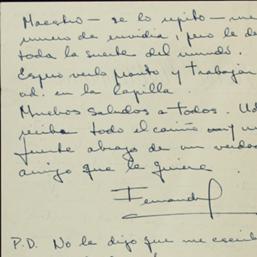 Maestro — se lo repito — me
muero de envidia, pero le de
toda la suerte del mundo.
Espero verlo pronto y trabajar
ud. en la capilla.
Muchos saludos a todos. Ud
reciba todo el cariño y un
fuerte abrazo de un verdad
amigo que le quiere
Fernando
P.D. No le digo que me escrib